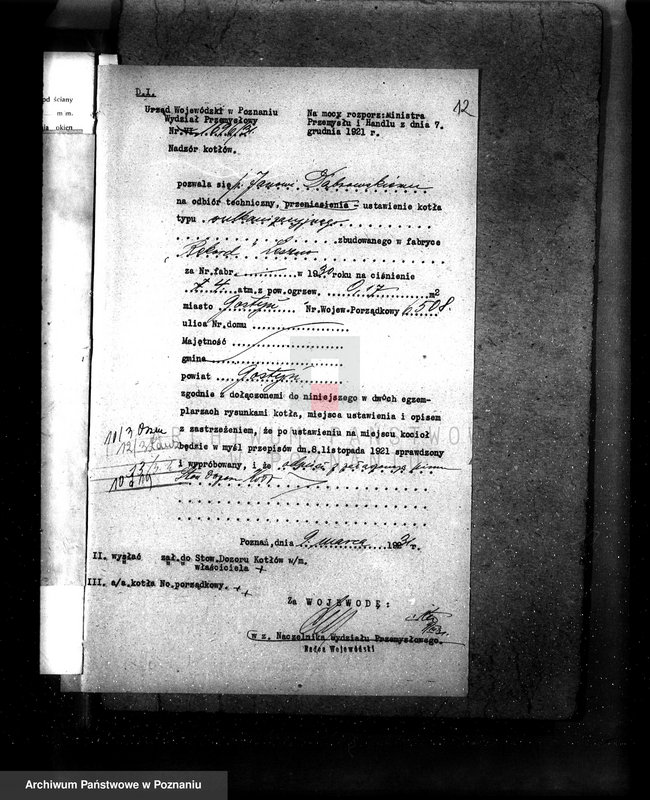 od ściany
m m.
okien
12
D.I.
Urząd Wojewódzki w Poznaniu
Wydział Przemysłowy
Nr.
Nadzór kotłów.
Na mocy rozporz:Ministra
Przemysłu i Handlu z dnia 7.
grudnia 1921 r.
pozwala się p. Janowi Dabrowskiemu
na odbiór techniczny, przeniesienie - ustawienie kotła
typu wulkanizacyjnego
zbudowanego w fabryce
Rekord Leszno
za Nr.fabr. — w 1930 roku na ciśnienie
4 atm.z pow.ogrzew. 0,17 m2
miasto Gostyń Nr.Wojew.Porządkowy 6508.
ulica Nr.domu
Majętność
gmina
powiat Gostyń
zgodnie z dołączonemi do niniejszego w dwóch egzem-
plarzach rysunkami kotła, miejsca ustawienia i opisem
z zastrzeżeniem, że po ustawieniu na miejscu kocioł
będzie w myśl przepisów dn.8.listopada 1921 sprawdzony
i wypróbowany, i że
Poznań,dnia 9. marca 1931 r.
II. wysłać zał.do Stow.Dozoru Kotłów w/m.
właściciela +
III. a/a.kotła No.porządkowy.
Za WOJEWODĘ:
w z. Naczelnika Wydziału Przemysłowego.
Radca Wojewódzki
ARCHIWUM PAŃSTWOWE
Archiwum Państwowe w Poznaniu